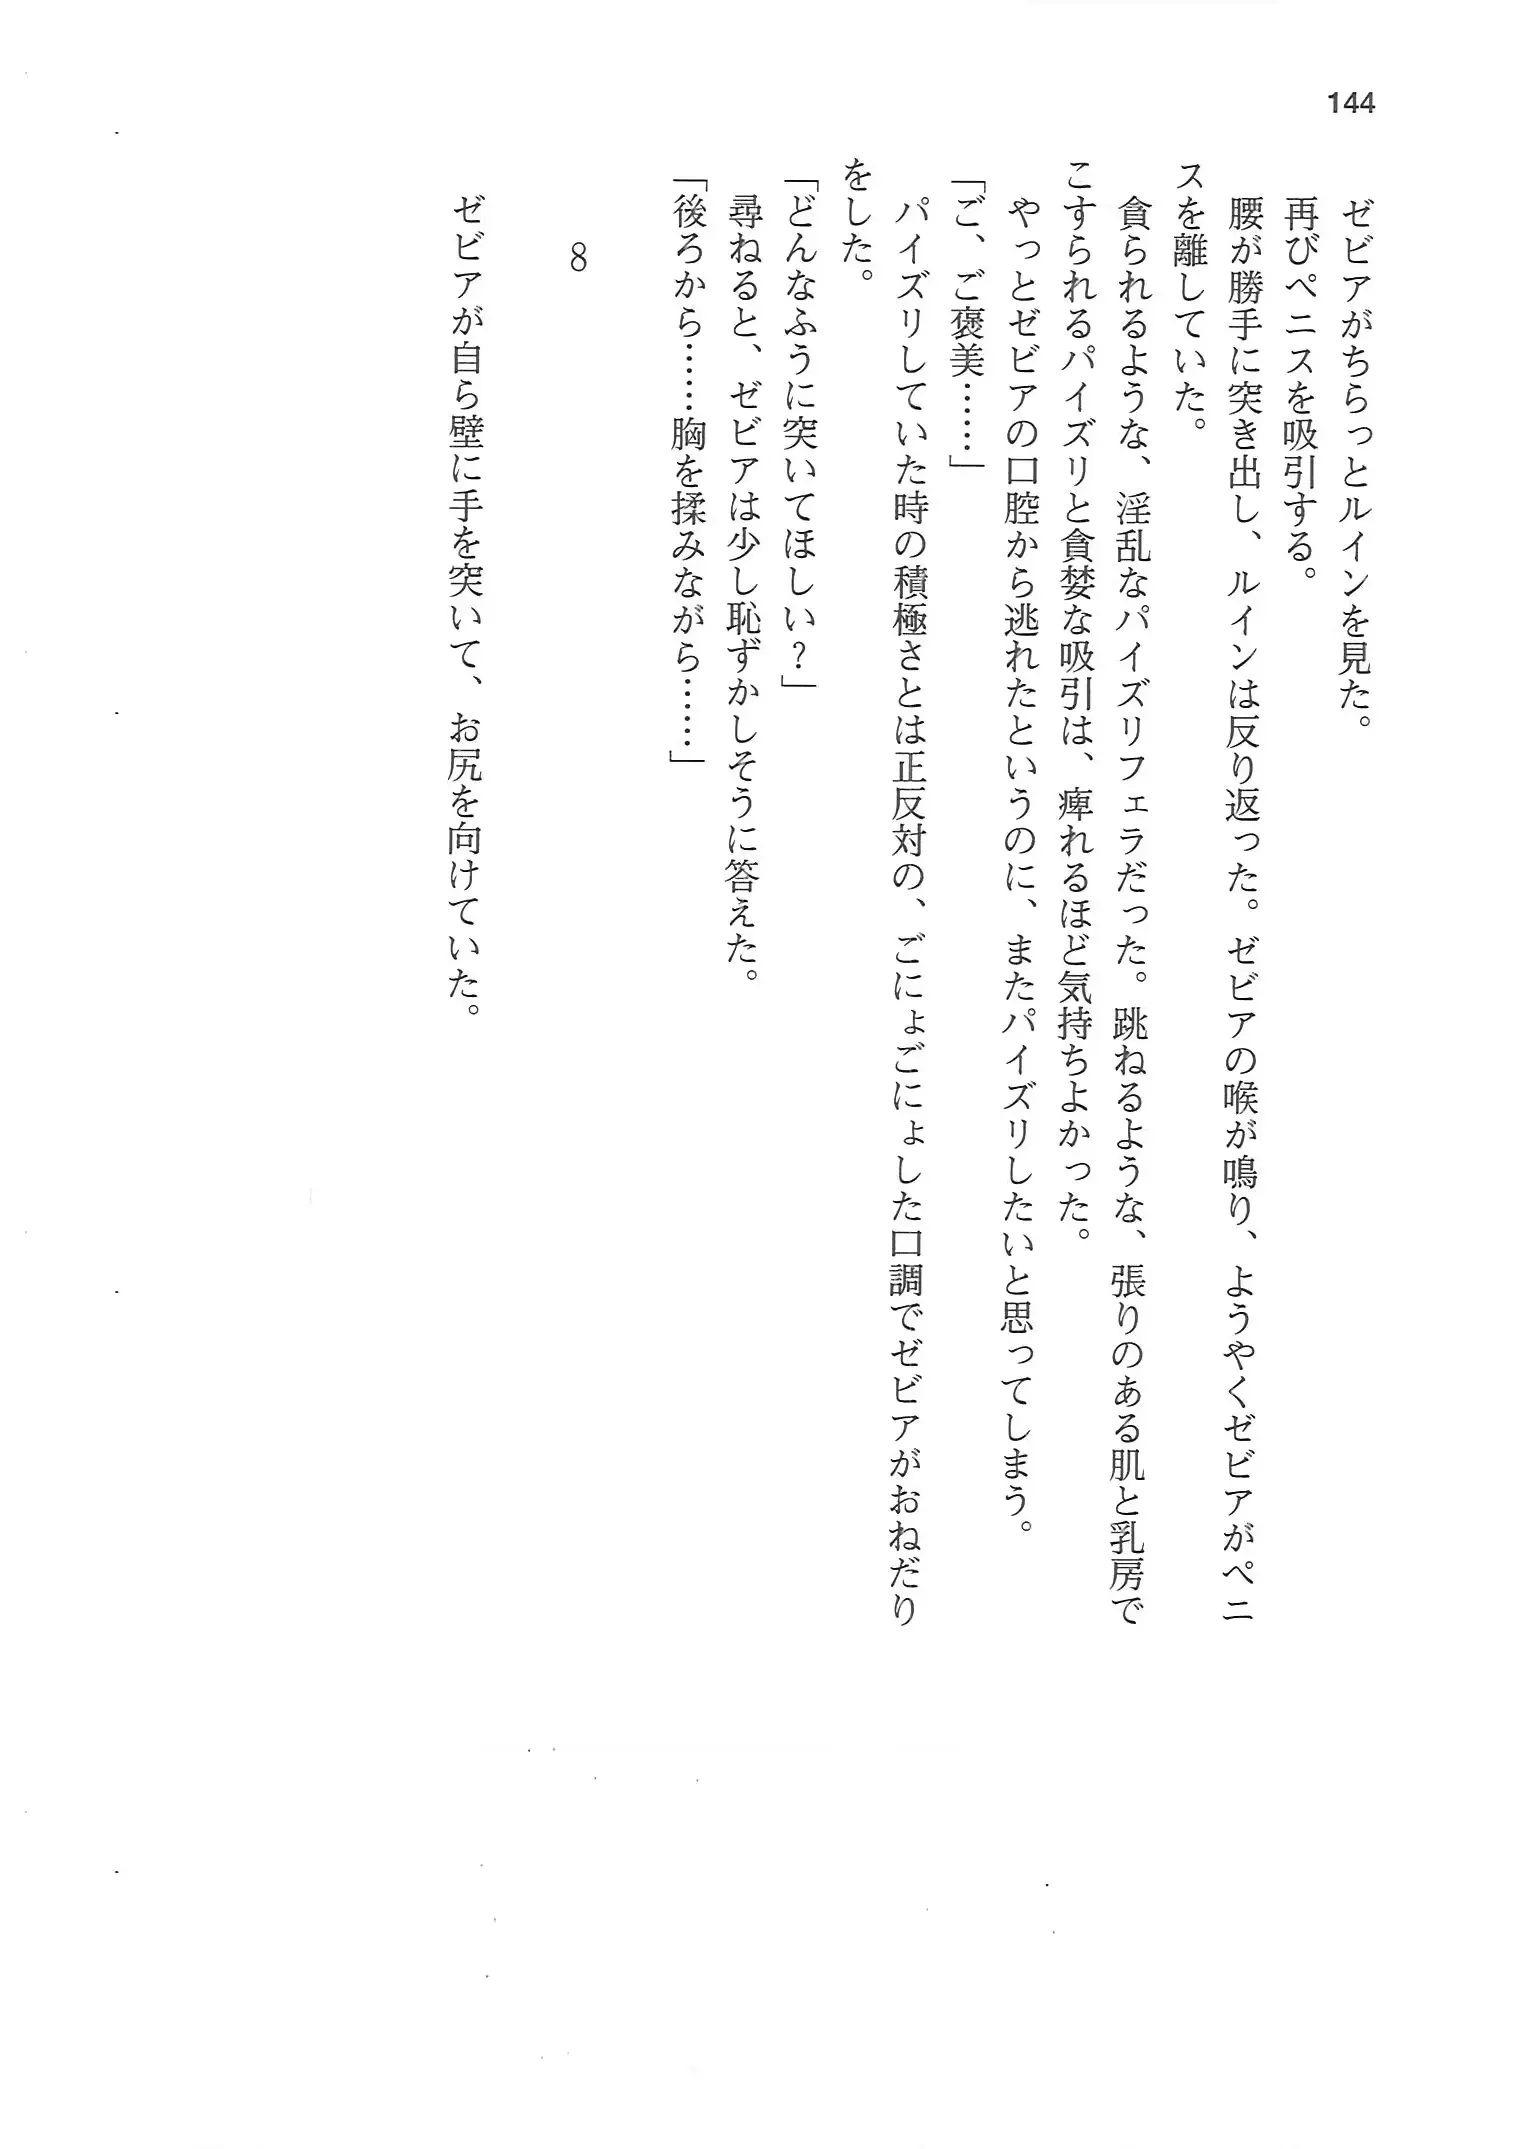 144
ゼビアがちらっとルインを見た。
再びペニスを吸引する。
腰が勝手に突き出し、ルインは反り返った。ゼビアの喉が鳴り、ようやくゼビアがペニ
スを離していた。
貪られるような、淫乱なパイズリフェラだった。跳ねるような、張りのある肌と乳房で
こすられるパイズリと貪婪な吸引は、痺れるほど気持ちよかった。
やっとゼビアの口腔から逃れたというのに、またパイズリしたいと思ってしまう。
「ご、ご褒美……」
パイズリしていた時の積極さとは正反対の、ごにょごにょした口調でゼビアがおねだり
をした。
「どんなふうに突いてほしい？」
尋ねると、ゼビアは少し恥ずかしそうに答えた。
「後ろから……胸を揉みながら……」
8
ゼビアが自ら壁に手を突いて、お尻を向けていた。